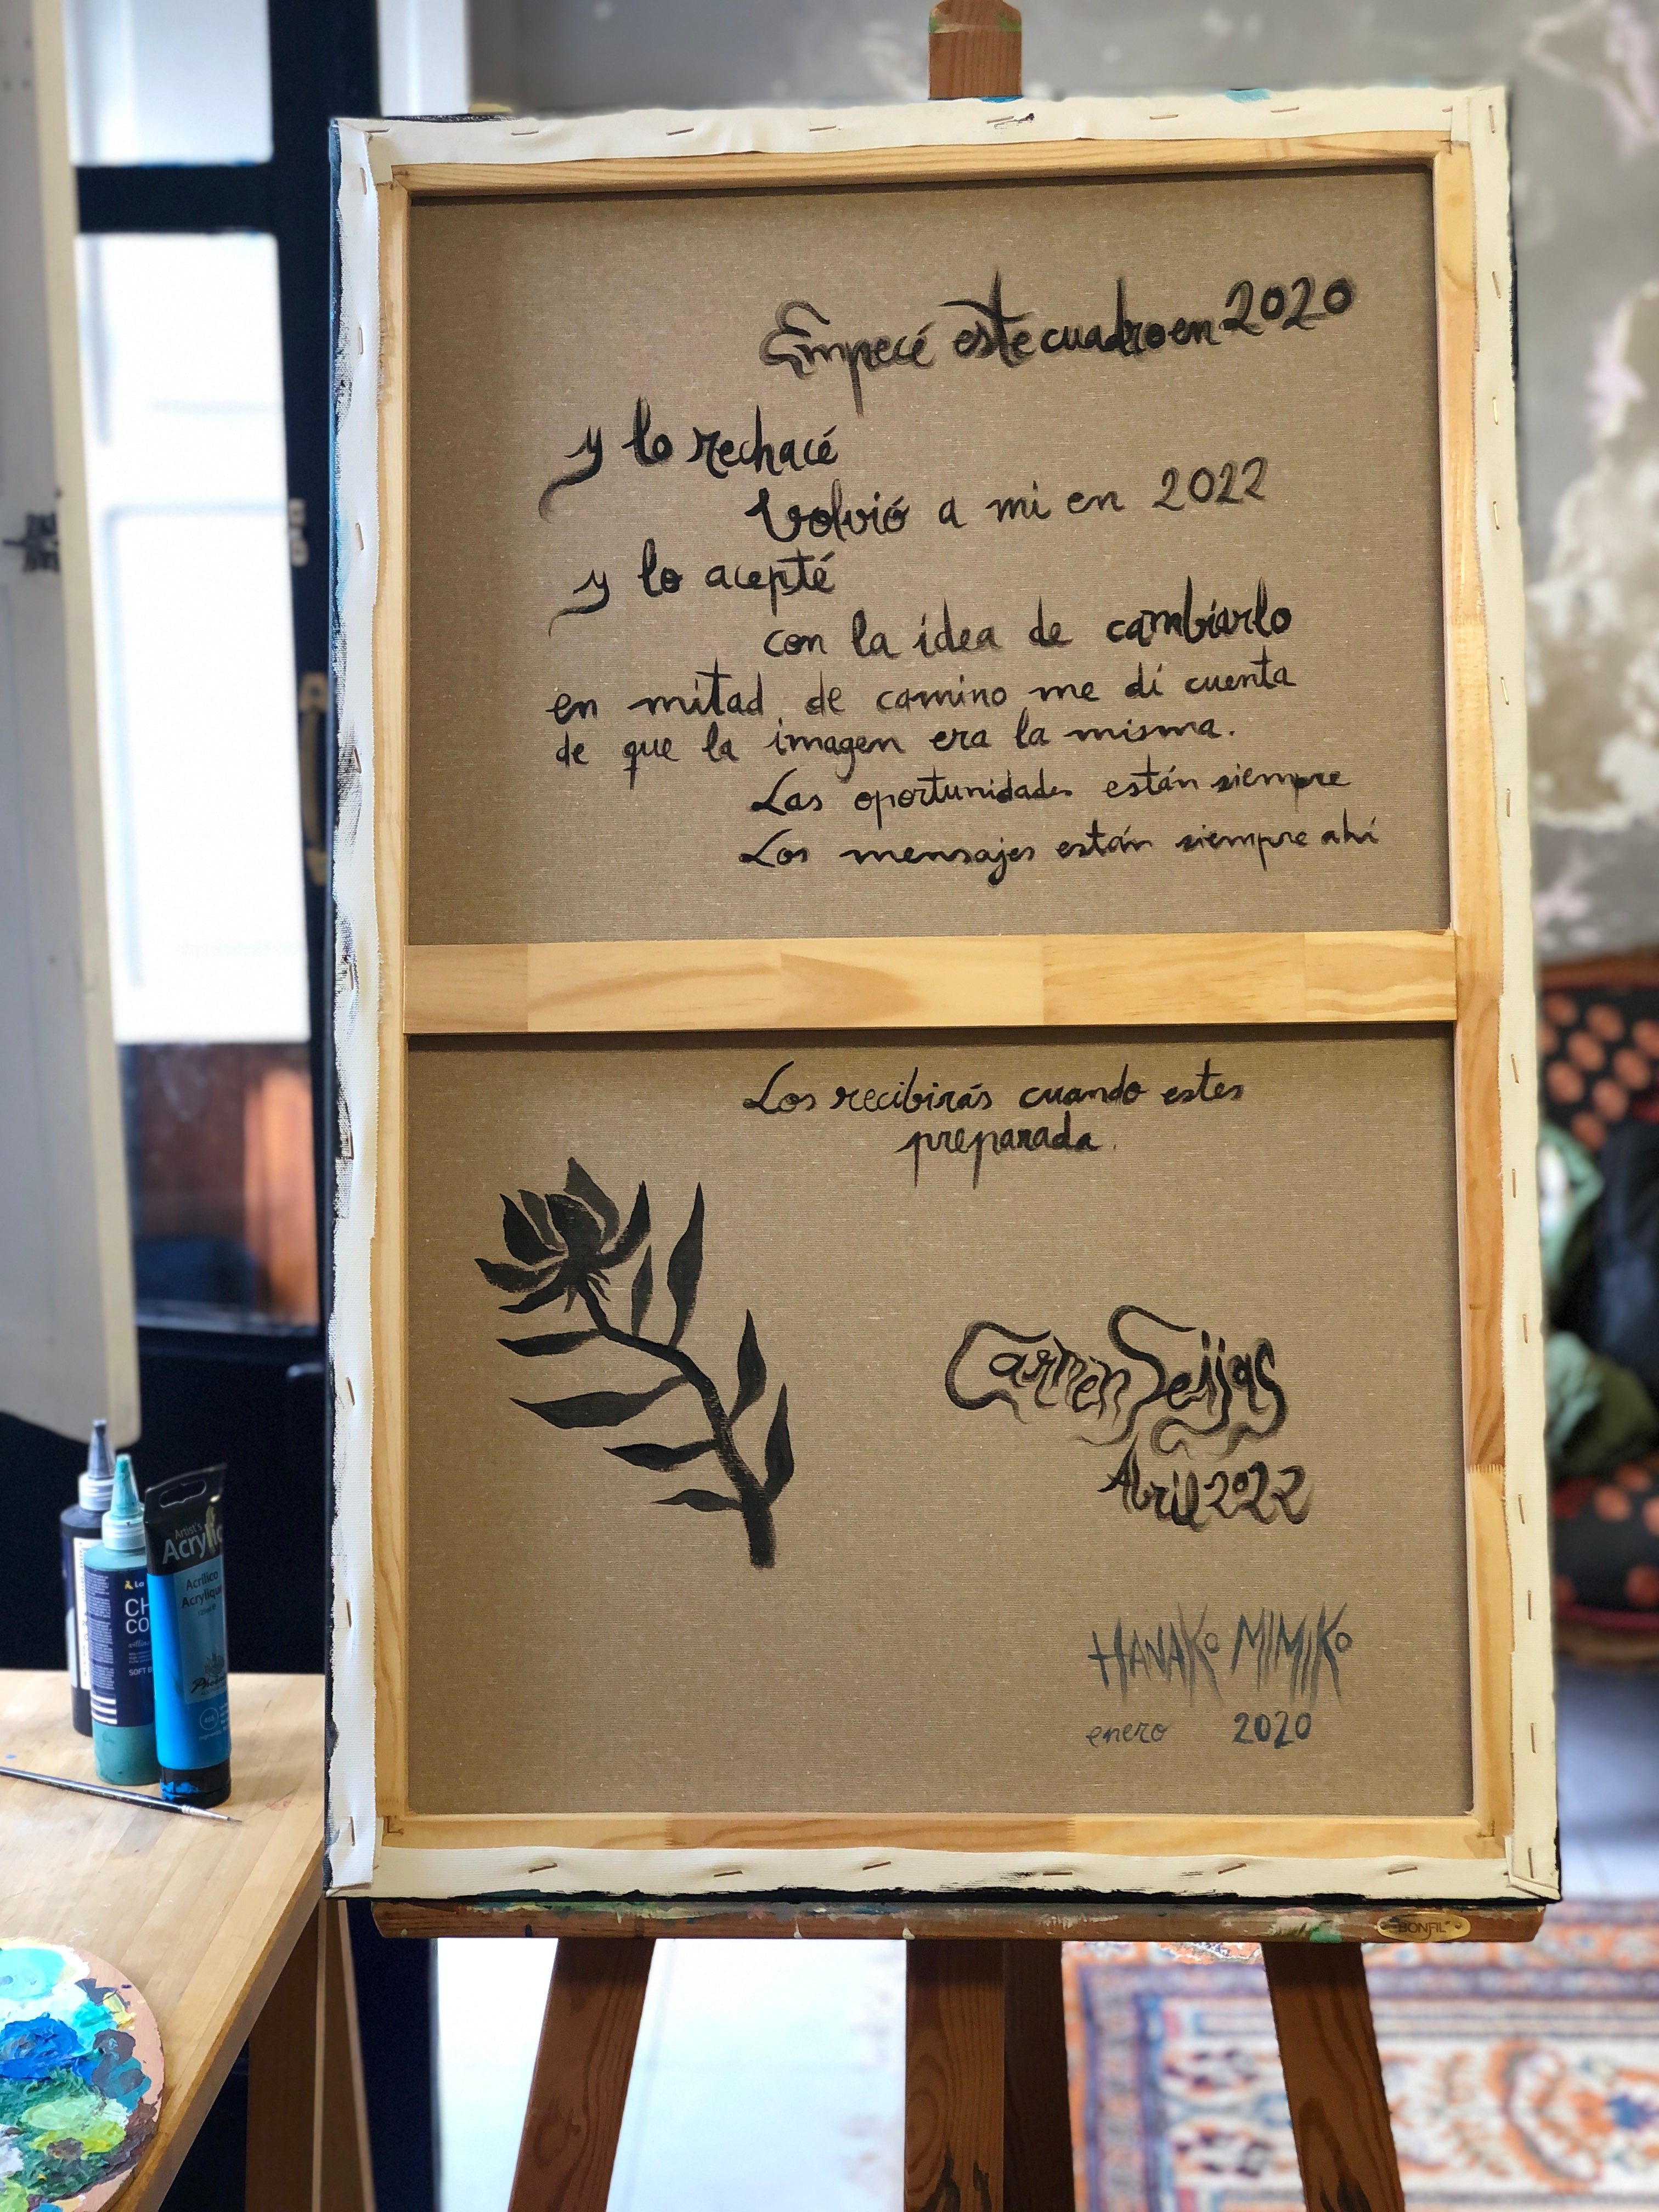 Empecé este cuadro en 2020
y lo rechacé
Volvió a mi en 2022
y lo acepté
con la idea de cambiarlo
en mitad de camino me dí cuenta
de que la imagen era la misma.
Las oportunidades están siempre
Los mensajes están siempre ahí
Los recibirás cuando estes
preparada.
Carmen Seijas
Abril 2022
HANAKO MIMIKO
enero 2020
BONFIL
Artist's
Acrylic
Acrílico
Acrylique
La
CH
CO
SOFT B